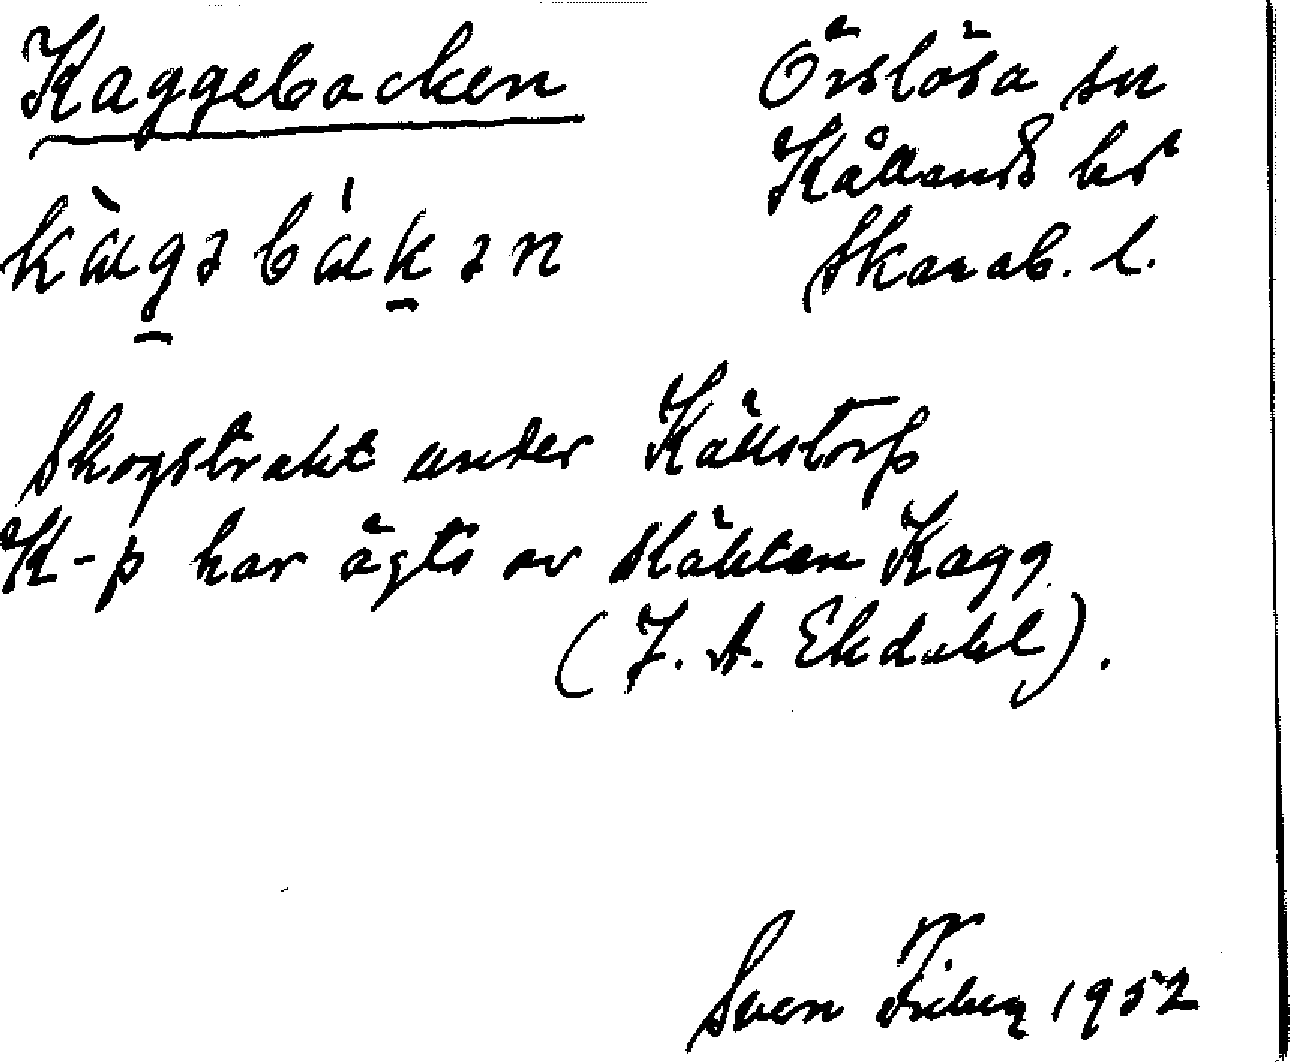 Kaggebacken
Örslösa sn
Kållands hd
Skarab. l.
kàgəbákən
Skogstrakt under Källstorp
K-p har ägts av släkten Kagg
(J. A. Ekdahl).
Sven Fiberg 1952